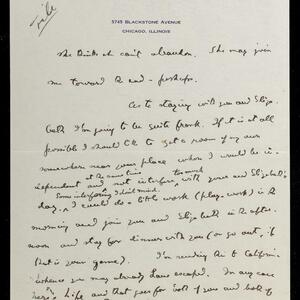 file
5745 Blackstone Avenue
Chicago, Illinois
she thinks she can't abandon. She may join
me toward the end - perhaps.
As to staying with you and Eliza-
beth I'm going to be quite frank. If it is at all
possible I should like to get a room of my own
somewhere near your place where I would be in-
dependent and at the same time not interfere too much with yours and Elizabeth's
day. Some interfering I don't mind. I could do a little work (play-work) in the
morning and join you and Elizabeth in the after-
noon and stay for dinner with you (or go out, if
that is your game). I'm sending this to California
whence you may already have escaped. In any case
here's Life and that goes for both of you and both of